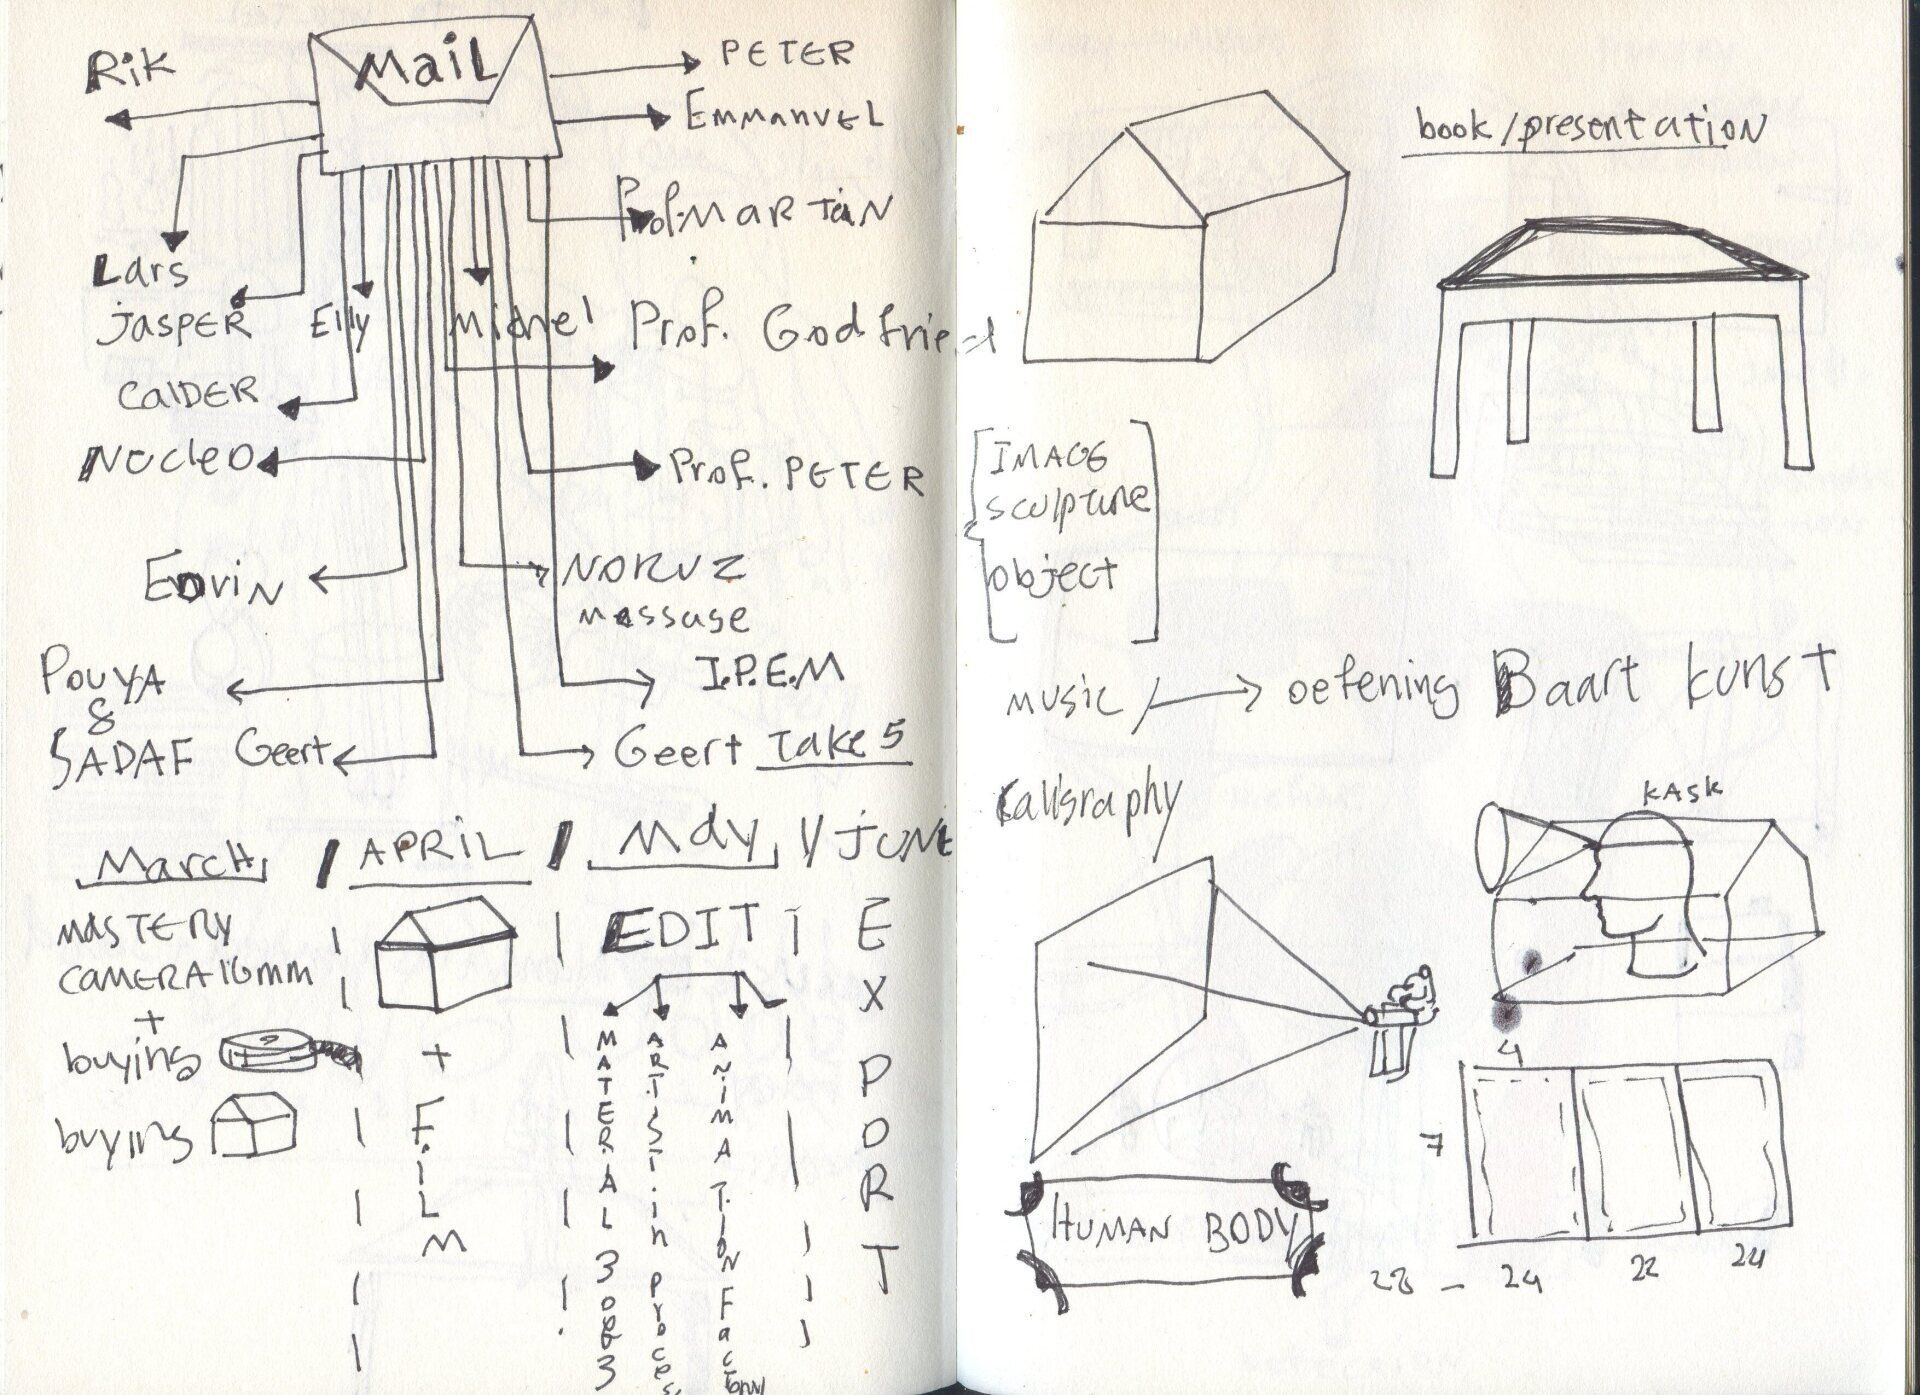 Mail
Rik
PETER
Emmanuel
Prof. Martin
Lars
jasper
Elly
Michel
Prof. Godfried
Calder
Nucleo
Prof. PETER
Edvin
NORUZ
message
POUYA
&
SADAF
I.P.E.M
Geert
Geert Take 5
March / APRIL / May // JUNE
MASTERY
CAMERA 16mm
+
buying
buying
+
FILM
EDIT
MATERIAL 3 of 3
ARTIST in process
ANIMATION Factory
EXPORT
book/presentation
IMAGE
sculpture
object
music / → oefening Baart kunst
Caligraphy
KASK
HUMAN BODY
4
7
28 - 24 22 24